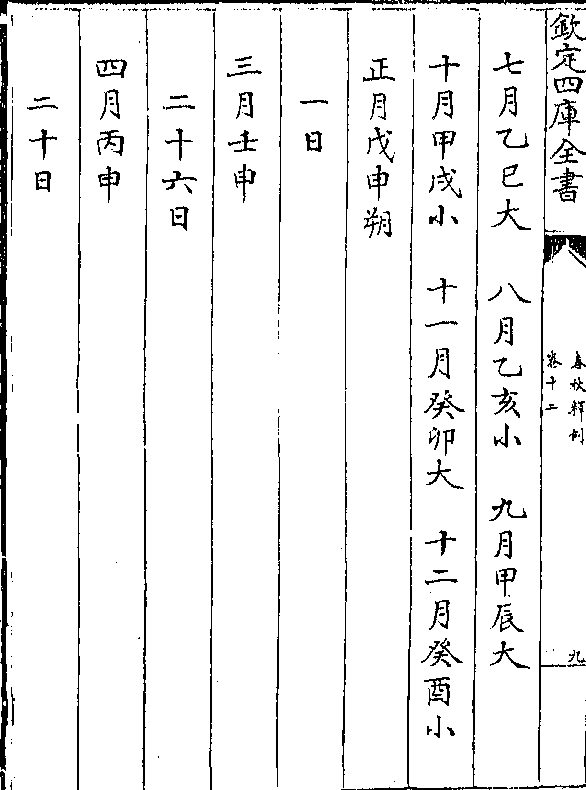 欽定四庫全書
春秋釋例
卷十二
九
七月乙巳大 八月乙亥小 九月甲辰大
十月甲戌小 十一月癸卯大 十二月癸酉小
正月戊申朔
一日
三月壬申
二十六日
四月丙申
二十日